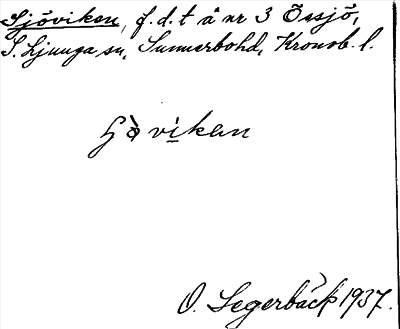 Sjöviken, f.d.t å nr 3 Össjö,
S. Ljunga sn, Sunnerbo hd, Kronob. l.
ʃȯ̀ vi̲ken
O. Segerbäck 1937.